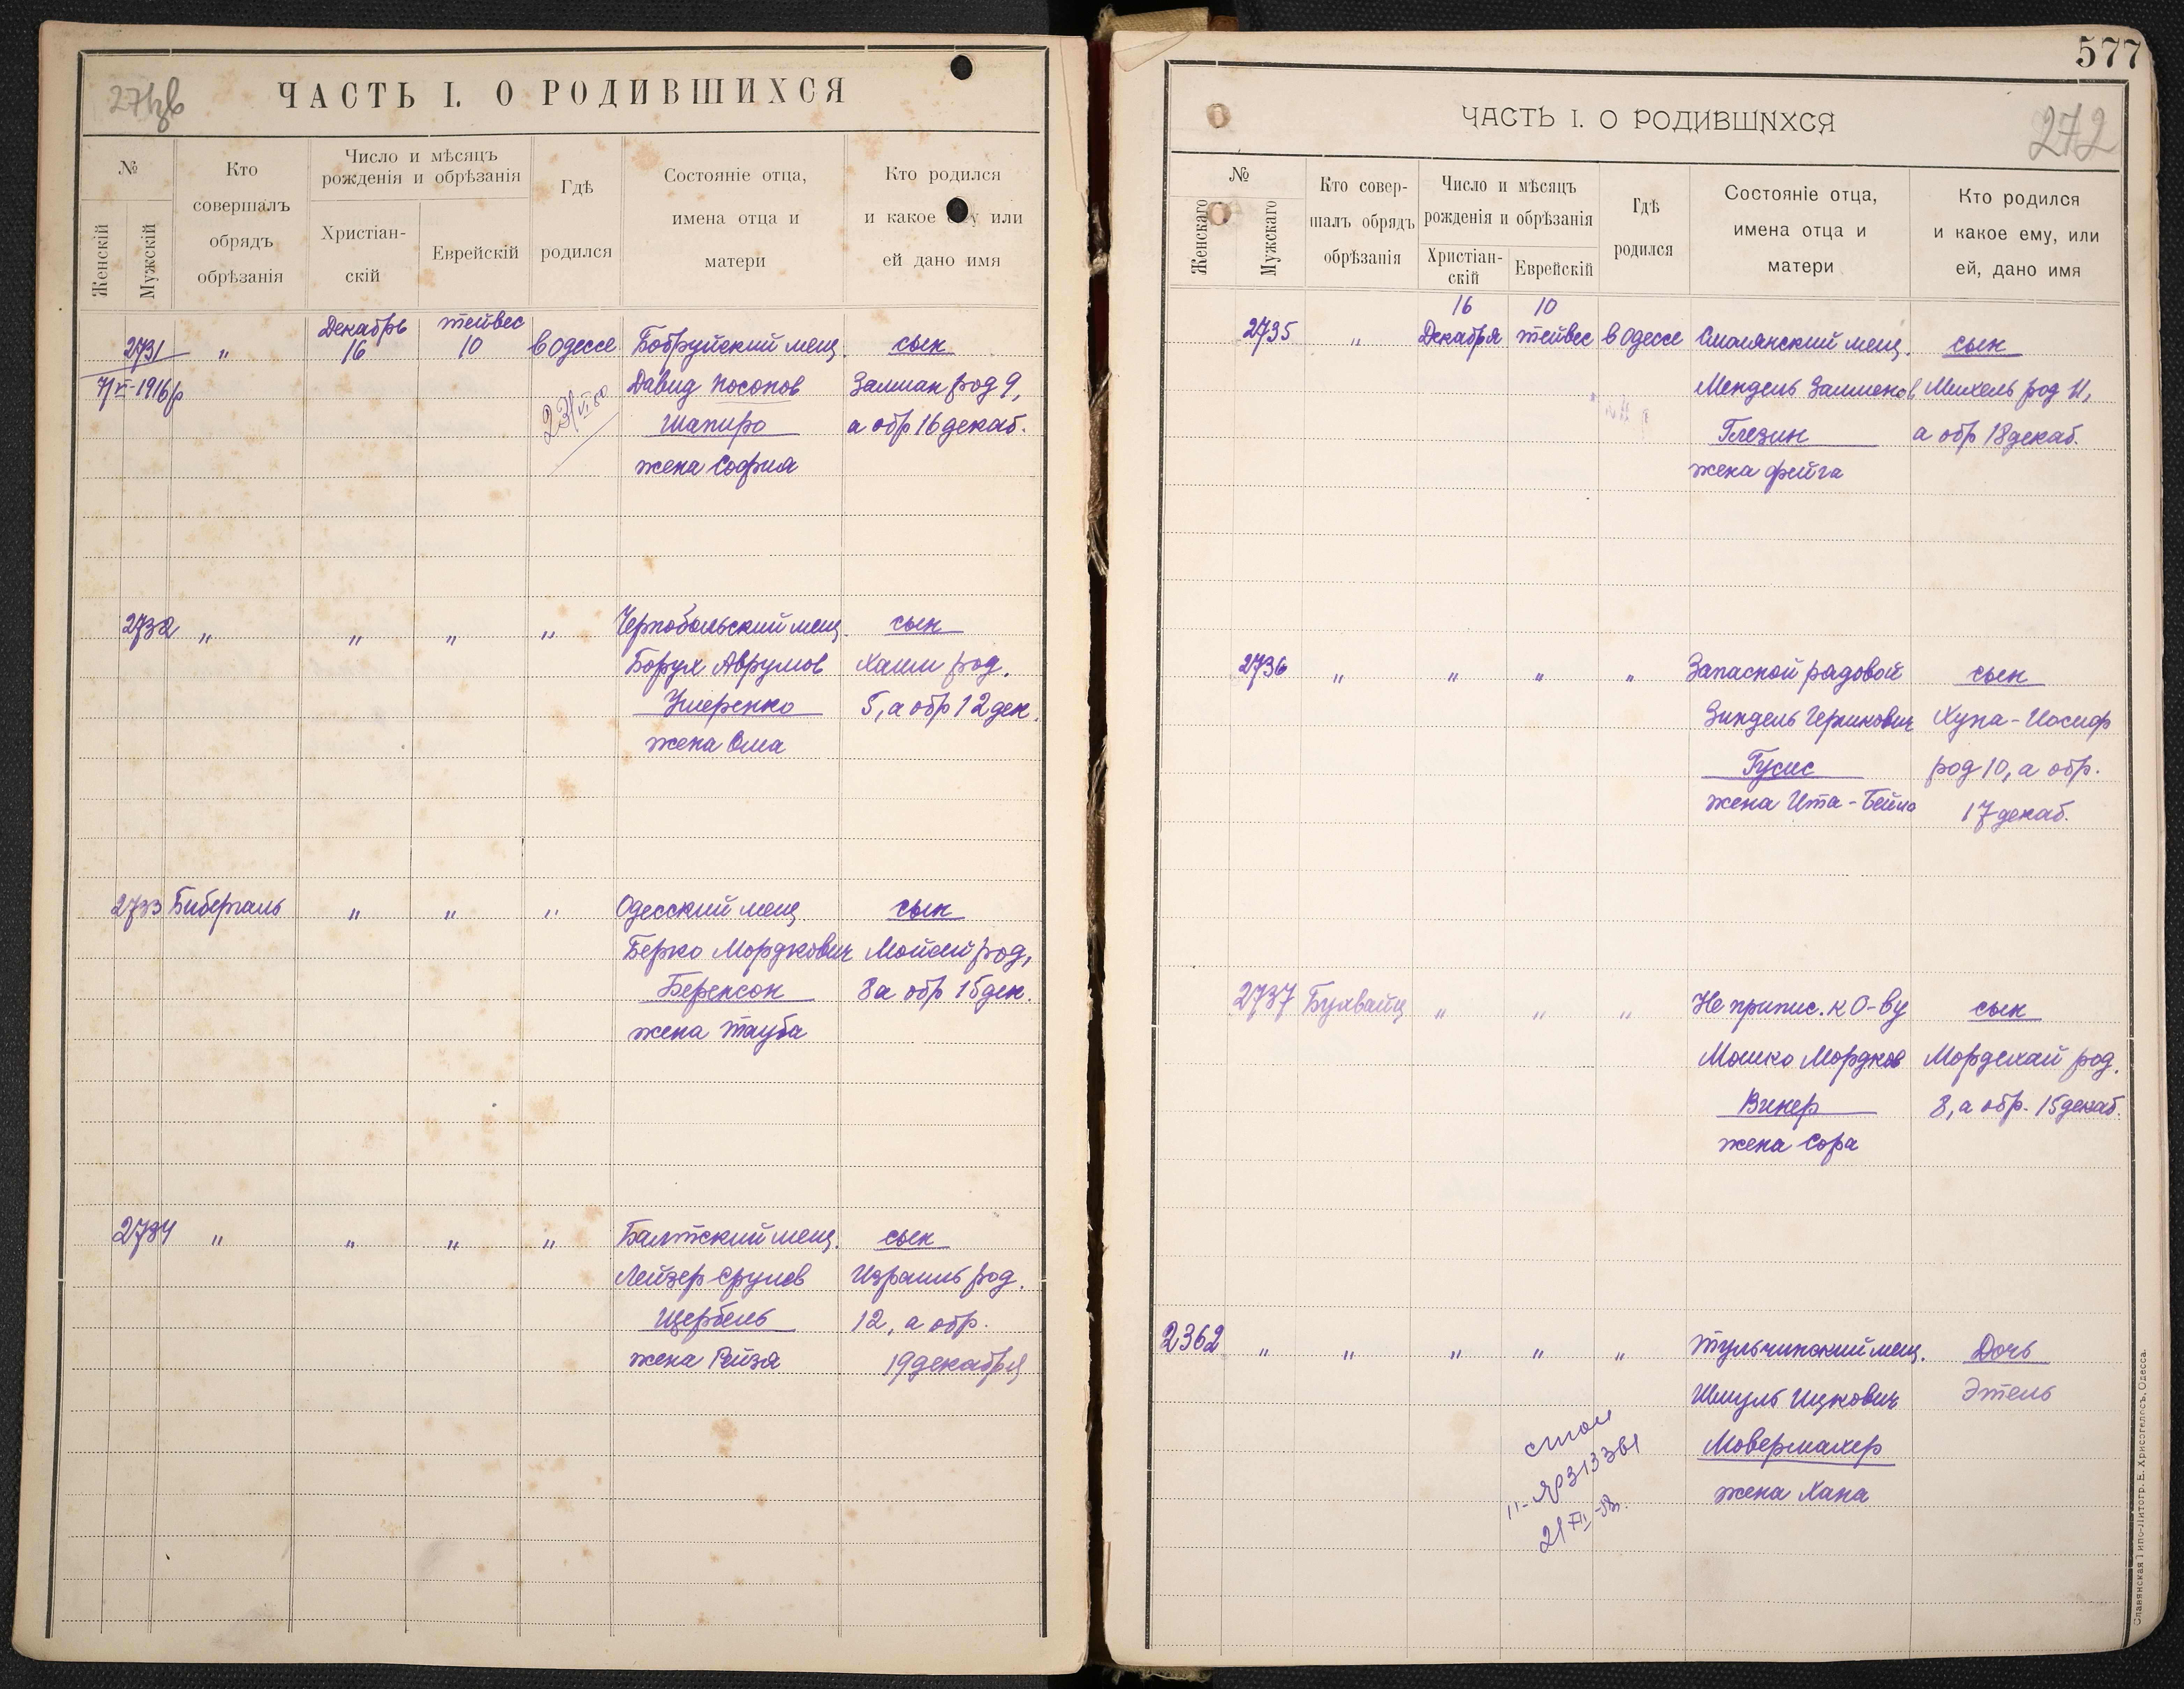 271 об
ЧАСТЬ I. О РОДИВШИХСЯ
№
Женскій
Мужскій
Кто
совершалъ
обрядъ
обрѣзанія
Число и мѣсяцъ
рожденія и обрѣзанія
Христіан-
скій
Еврейскій
Гдѣ
родился
Состояніе отца,
имена отца и
матери
Кто родился
и какое у или
ей дано имя
2731 „ Декабрь 16 тейвес 10 в Одессе Бобруйский мещ. сын
7/VI-1916 Давид Носонов Залман род 9,
23/VI 80 Шапиро а обр 16 декаб.
жена София
2732 „ „ „ „ Чернобыльский мещ. сын
Борух Аврумов Хаим род.
Ушеренко 5, а обр 12 дек.
жена
2733 Бибергаль „ „ „ Одесский мещ сын
Берко Мордкович Мойсей род,
Беренсон 8 а обр 15 дек.
жена Тауба
2734 „ „ „ „ Балтский мещ. сын
Лейзер Срулев Израиль род.
Щербель 12, а обр.
жена Рейза 19 декабря
577
ЧАСТЬ I. О РОДИВШИХСЯ
272
№
Женскаго
Мужскаго
Кто совер-
шалъ обрядъ
обрѣзанія
Число и мѣсяцъ
рожденія и обрѣзанія
Христіан-
скій
Еврейскій
Гдѣ
родился
Состояніе отца,
имена отца и
матери
Кто родился
и какое ему, или
ей, дано имя
16 10
2735 „ Декабря тейвес в Одессе Смолянский мещ. сын
Мендель Залменов Михель род 11,
Глезин а обр 18 декаб.
жена Фейга
2736 „ „ „ „ Запасной рядовой сын
Зиндель Хуна-Иосиф
Гусис род 10, а обр.
жена Ита-Бейла 17 декаб.
2737 Бухвайц „ „ „ Не припис. к О-ву сын
Мошко Мордков Мордехай род.
Винер 8, а обр. 15 декаб.
жена Сора
2362 „ „ „ „ „ Тульчинский мещ. Дочь
Шмуль Ицкович Этель
Мовермахер
жена Хана
21 XII
Славянская Типо-Литогр. Е. Хрисогелосъ, Одесса.